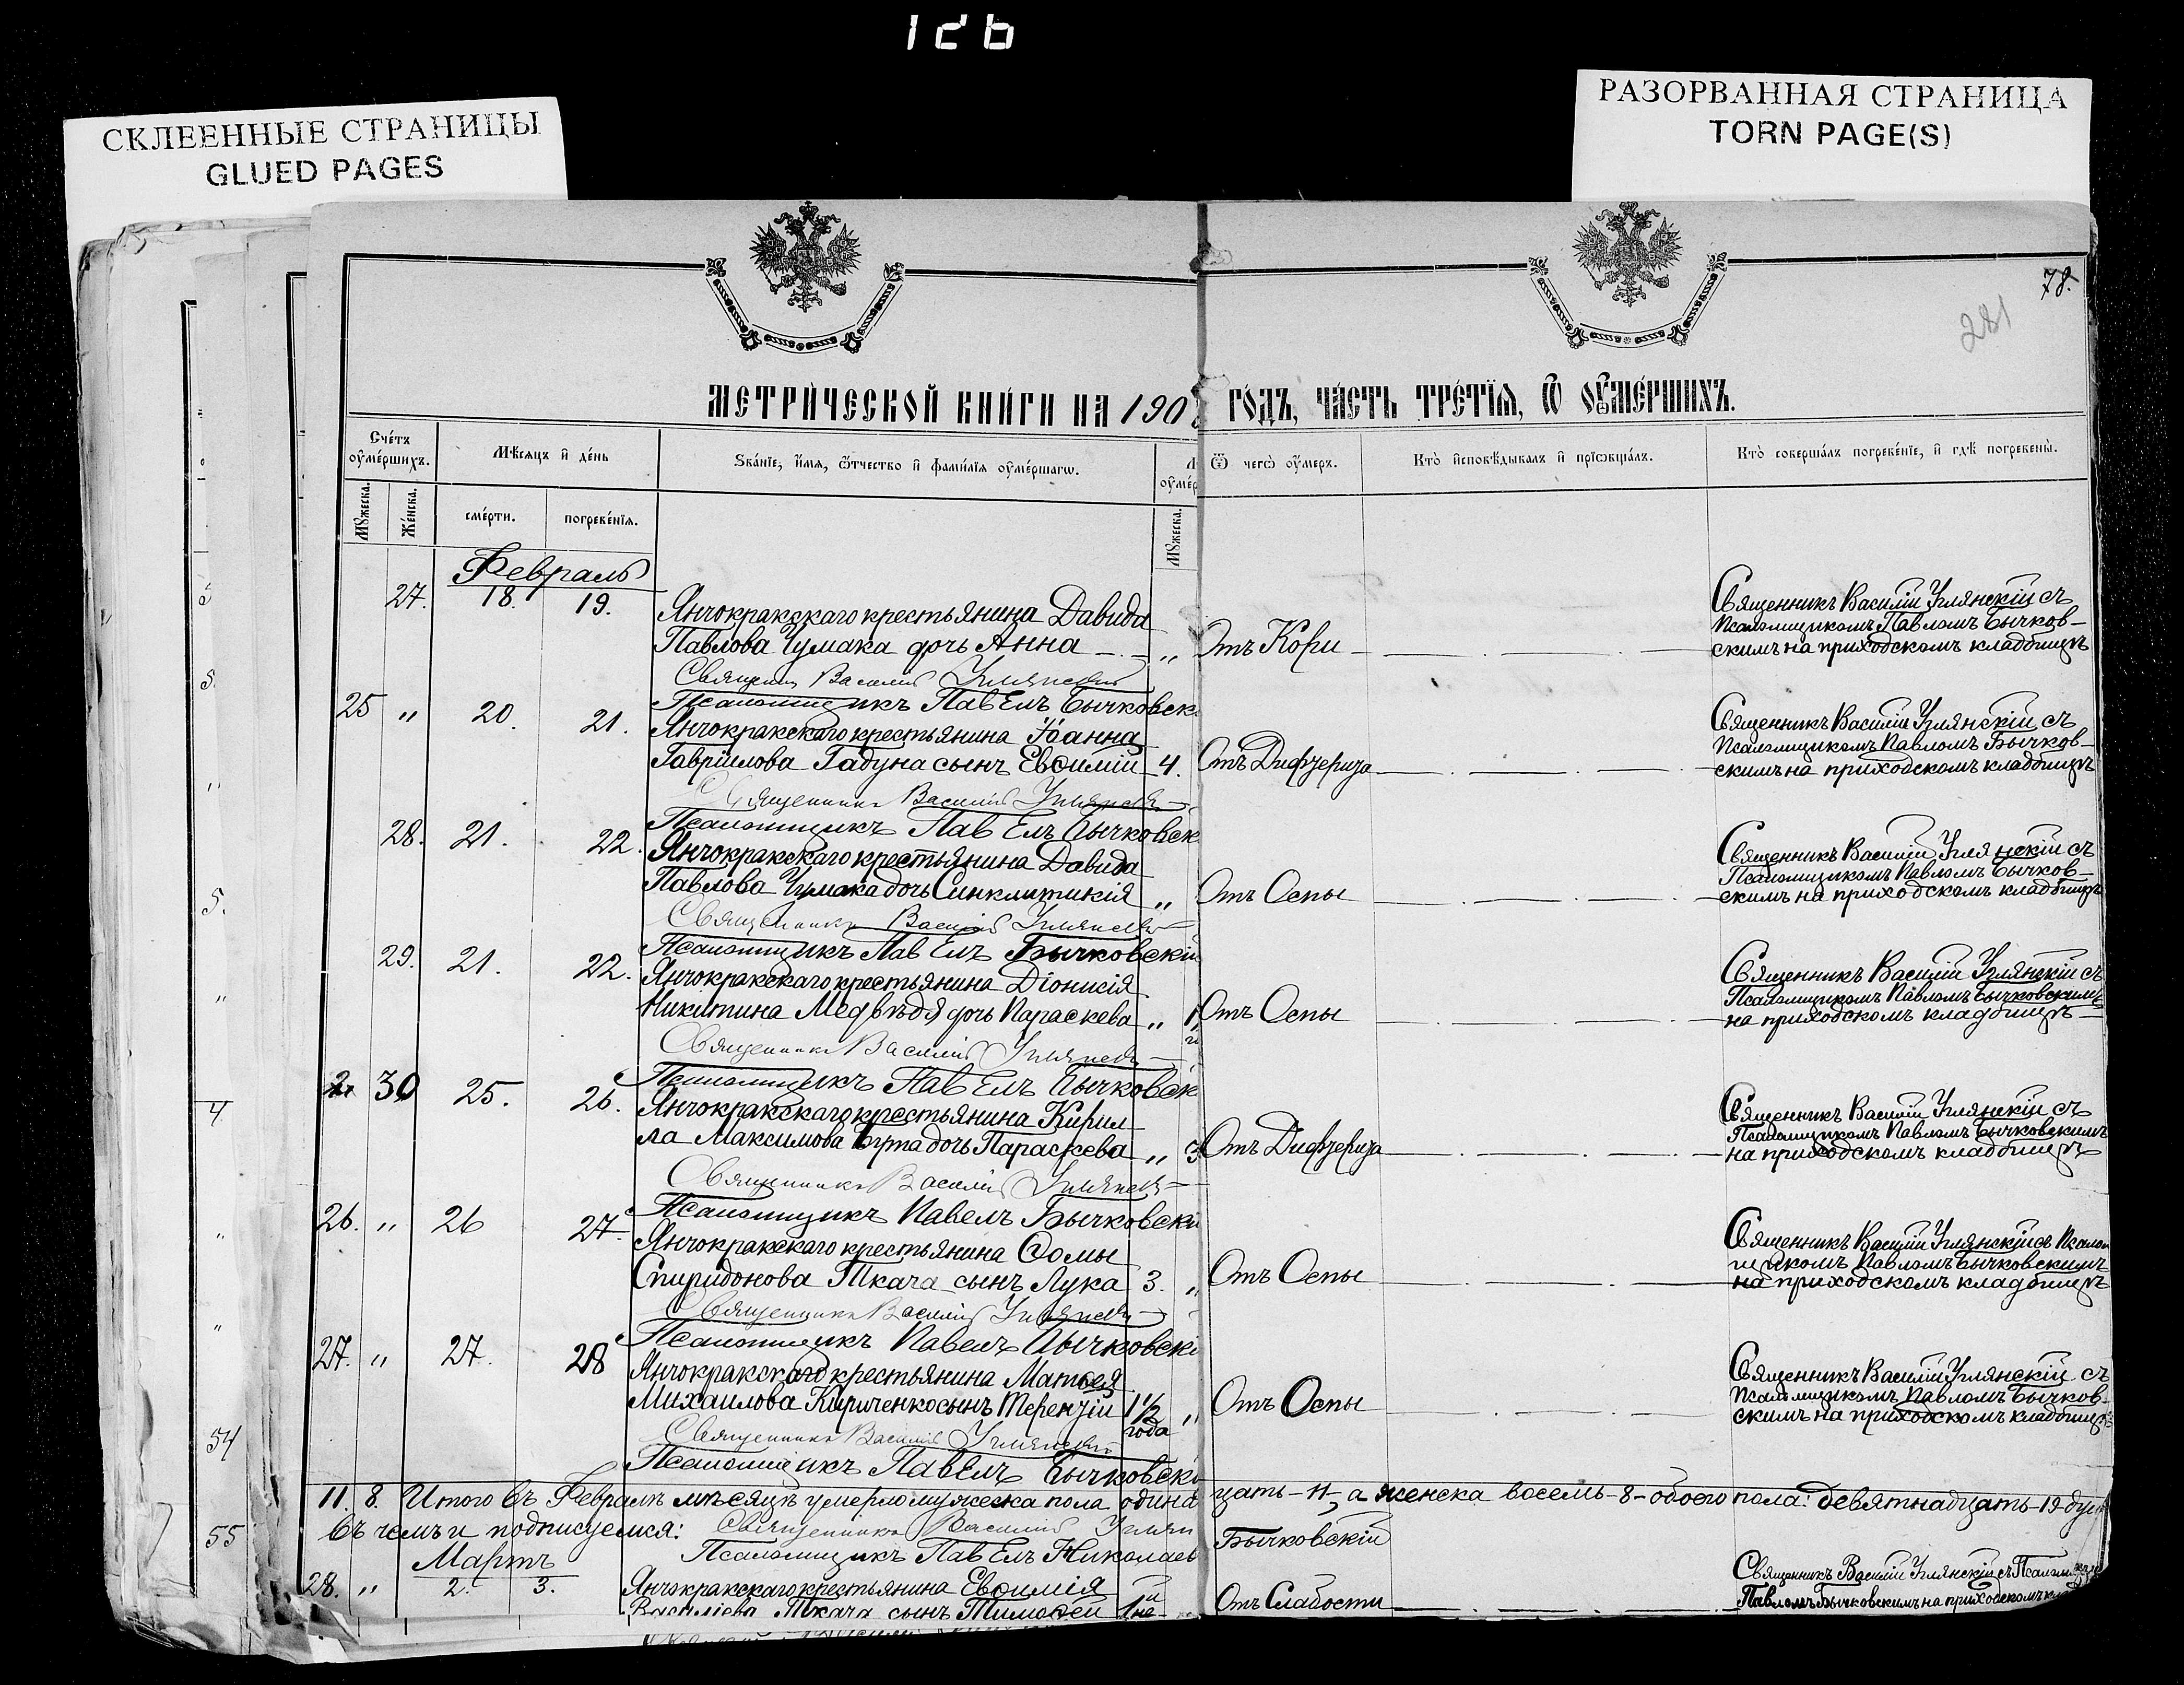 126
СКЛЕЕННЫЕ СТРАНИЦЫ
GLUED PAGES
РАЗОРВАННАЯ СТРАНИЦА
TORN PAGE(S)
78.
281
МЕТРИ́ЧЕСКОЙ КНИ́ГИ НА 190
ГО́ДЪ, ЧА́СТЬ ТРЕ́ТЇѦ, Ѡ҆ ОУ҆МЕ́РШИХЪ.
Сче́тъ оу҆ме́ршихъ.
Мѣ́сѧцъ и҆ де́нь
Зва́нїе, и҆́мѧ, ѻ҆́тчество и҆ фами́лїѧ оу҆ме́ршагѡ.
Ѿ чегѡ̀ оу҆́меръ.
Кто̀ и҆сповѣ́дывалъ и҆ прїѡбща́лъ.
Кто̀ соверша́лъ погребе́нїе, и҆ гдѣ̀ погребены̀.
Мꙋ́жеска.
Же́нска.
сме́рти.
погребе́нїѧ.
Мꙋ́жеска.
Февраль
27. 18. 19. Янчокракскаго крестьянина Давида
Павлова Чумака дочь Анна „
Священник Василий Углянский
Псаломщикъ Павелъ Бычковск
Отъ Кори
Священникъ Василій Углянскій съ
Псаломщикомъ Павломъ Бычков-
скимъ на приходскомъ кладбищѣ
25 „ 20. 21. Янчокракскаго крестьянина Іоанна
Гавріилова Гадуна сынъ Евѳимій 4.
Священникъ Василій Углянскій
Псаломщикъ Павелъ Бычковск
Отъ Дифтерита
Священникъ Василій Углянскій съ
Псаломщикомъ Павломъ Бычков-
скимъ на приходскомъ кладбищѣ
28. 21. 22. Янчокракскаго крестьянина Давида
Павлова Чумака дочь Синклитикія „
Священникъ Василій Углянскій
Псаломщикъ Павелъ Бычковскій
Отъ Оспы
Священникъ Василій Углянскій съ
Псаломщикомъ Павломъ Бычков-
скимъ на приходскомъ кладбищѣ
29. 21. 22. Янчокракскаго крестьянина Діонисія
Никитина Медвѣдя дочь Параскева „ 1
Священникъ Василій Углянскій
Псаломщикъ Павелъ Бычковск
Отъ Оспы
Священникъ Василій Углянскій съ
Псаломщикомъ Павломъ Бычковскимъ
на приходскомъ кладбищѣ
30 25. 26. Янчокракскаго крестьянина Кирил-
ла Максимова Бута дочь Параскева „ 3
Священникъ Василій Углянскій
Псаломщикъ Павелъ Бычковскі
Отъ Дифтерита
Священникъ Василій Углянскій съ
Псаломщикомъ Павломъ Бычковскимъ
на приходскомъ кладбищѣ
26. „ 26 27. Янчокракскаго крестьянина Ѳомы
Спиридонова Ткача сынъ Лука 3. „
Священникъ Василій Углянскій
Псаломщикъ Павелъ Бычковскі
Отъ Оспы
Священникъ Василій Углянскій съ Псалом
щикомъ Павломъ Бычковскимъ
на приходскомъ кладбищѣ
27. „ 27. 28 Янчокракскаго крестьянина Матѳея
Михаилова Кириченко сынъ Терентій 1½ „
года
Священникъ Василій Углянскій
Псаломщикъ Павелъ Бычковскі
Отъ Оспы
Священникъ Василій Углянскій съ
Псаломщикомъ Павломъ Бычков-
скимъ на приходскомъ кладбищѣ
11. 8. Итого въ Февралѣ мѣсяцѣ умерло мужеска пола одинад
цать-11-, а женска восемь-8-обоего пола: девятнадцать-19-душ
въ чемъ и подписуемся: Священникъ Василій Углян
Псаломщикъ Павелъ Николаев
Бычковскій
Мартъ
28. „ 2. 3. Янчокракскаго крестьянина Евѳимія
Василіева Ткача сынъ Тимоѳей
Отъ Слабости
Священникъ Василій Углянскій съ Псалом
Павломъ Бычковскимъ на приходскомъ
54
55